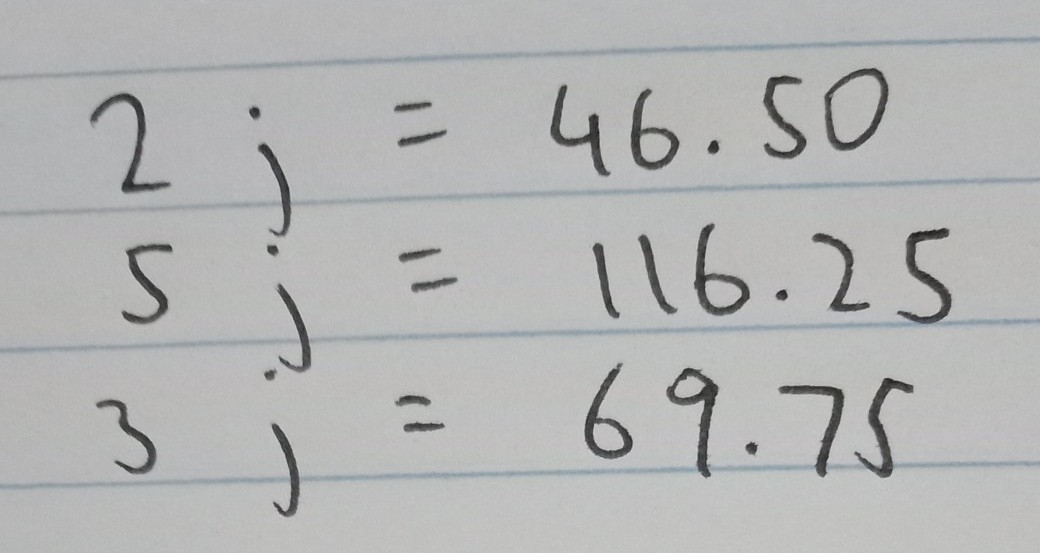 2 j = 46.50
5 j = 116.25
3 j = 69.75